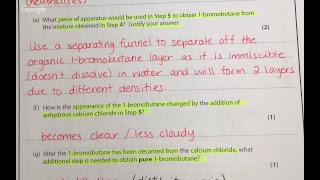 Google
neutralises)
(e) What piece of apparatus would be used in Step 5 to obtain 1-bromobutane from
the mixture obtained in Step 4? Justify your answer.
(2)
Use a separating funnel to separate off the
organic 1-bromobutane layer as it is immiscible
(doesn't dissolve) in water and will form 2 layers
due to different densities.
(f) How is the appearance of the 1-bromobutane changed by the addition of
anhydrous calcium chloride in Step 5?
(1)
becomes clear / less cloudy
(g) After the 1-bromobutane has been decanted from the calcium chloride, what
additional step is needed to obtain pure 1-bromobutane?
(1)